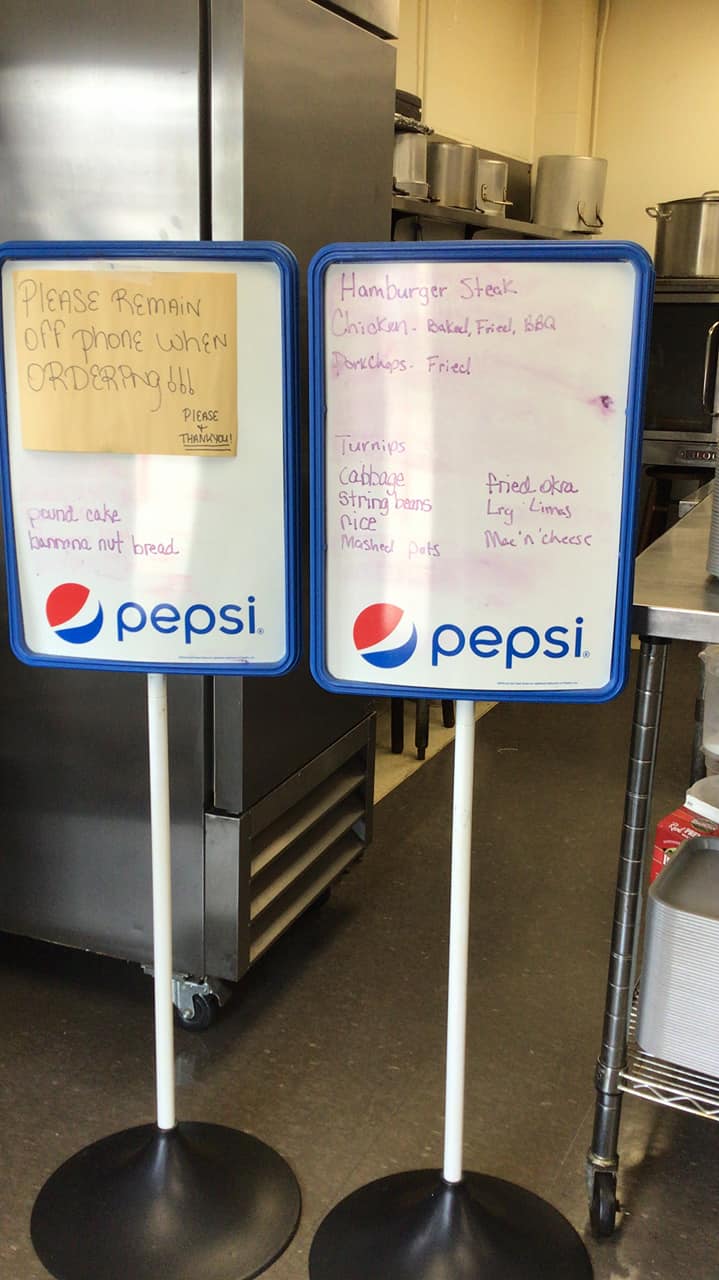 PLEASE REMAIN
OFF PHONE WHEN
ORDERING!!!
PLEASE
&
THANKYOU!
pound cake
bannana nut bread
pepsi
Hamburger Steak
Chicken - Baked, Fried, BBQ
Porkchops - Fried
Turnips
Cabbage
String beans
rice
Mashed pots
fried okra
Lrg Limas
Mac'n'cheese
pepsi